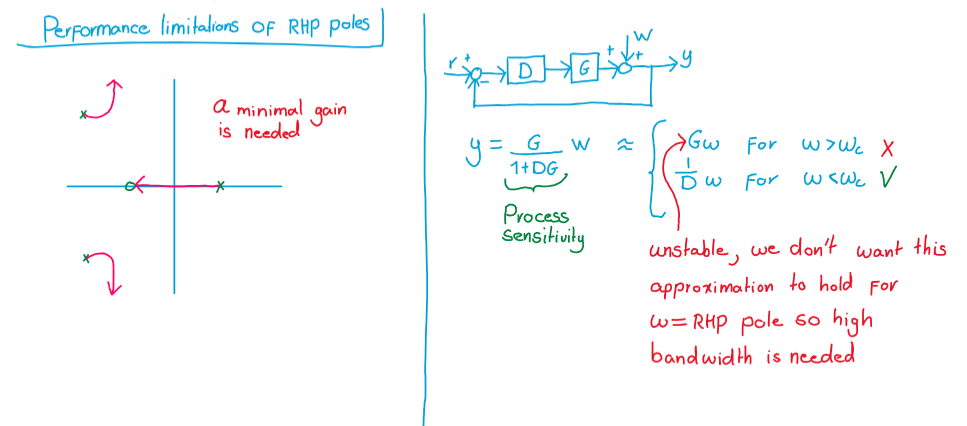 Performance limitations OF RHP poles
a minimal gain
is needed
r + - D G + w + y
y = G / 1+DG w ≈ { Gw For w>wc X
1/D w For w<wc V
Process
sensitivity
unstable, we don't want this
approximation to hold For
w=RHP pole so high
bandwidth is needed